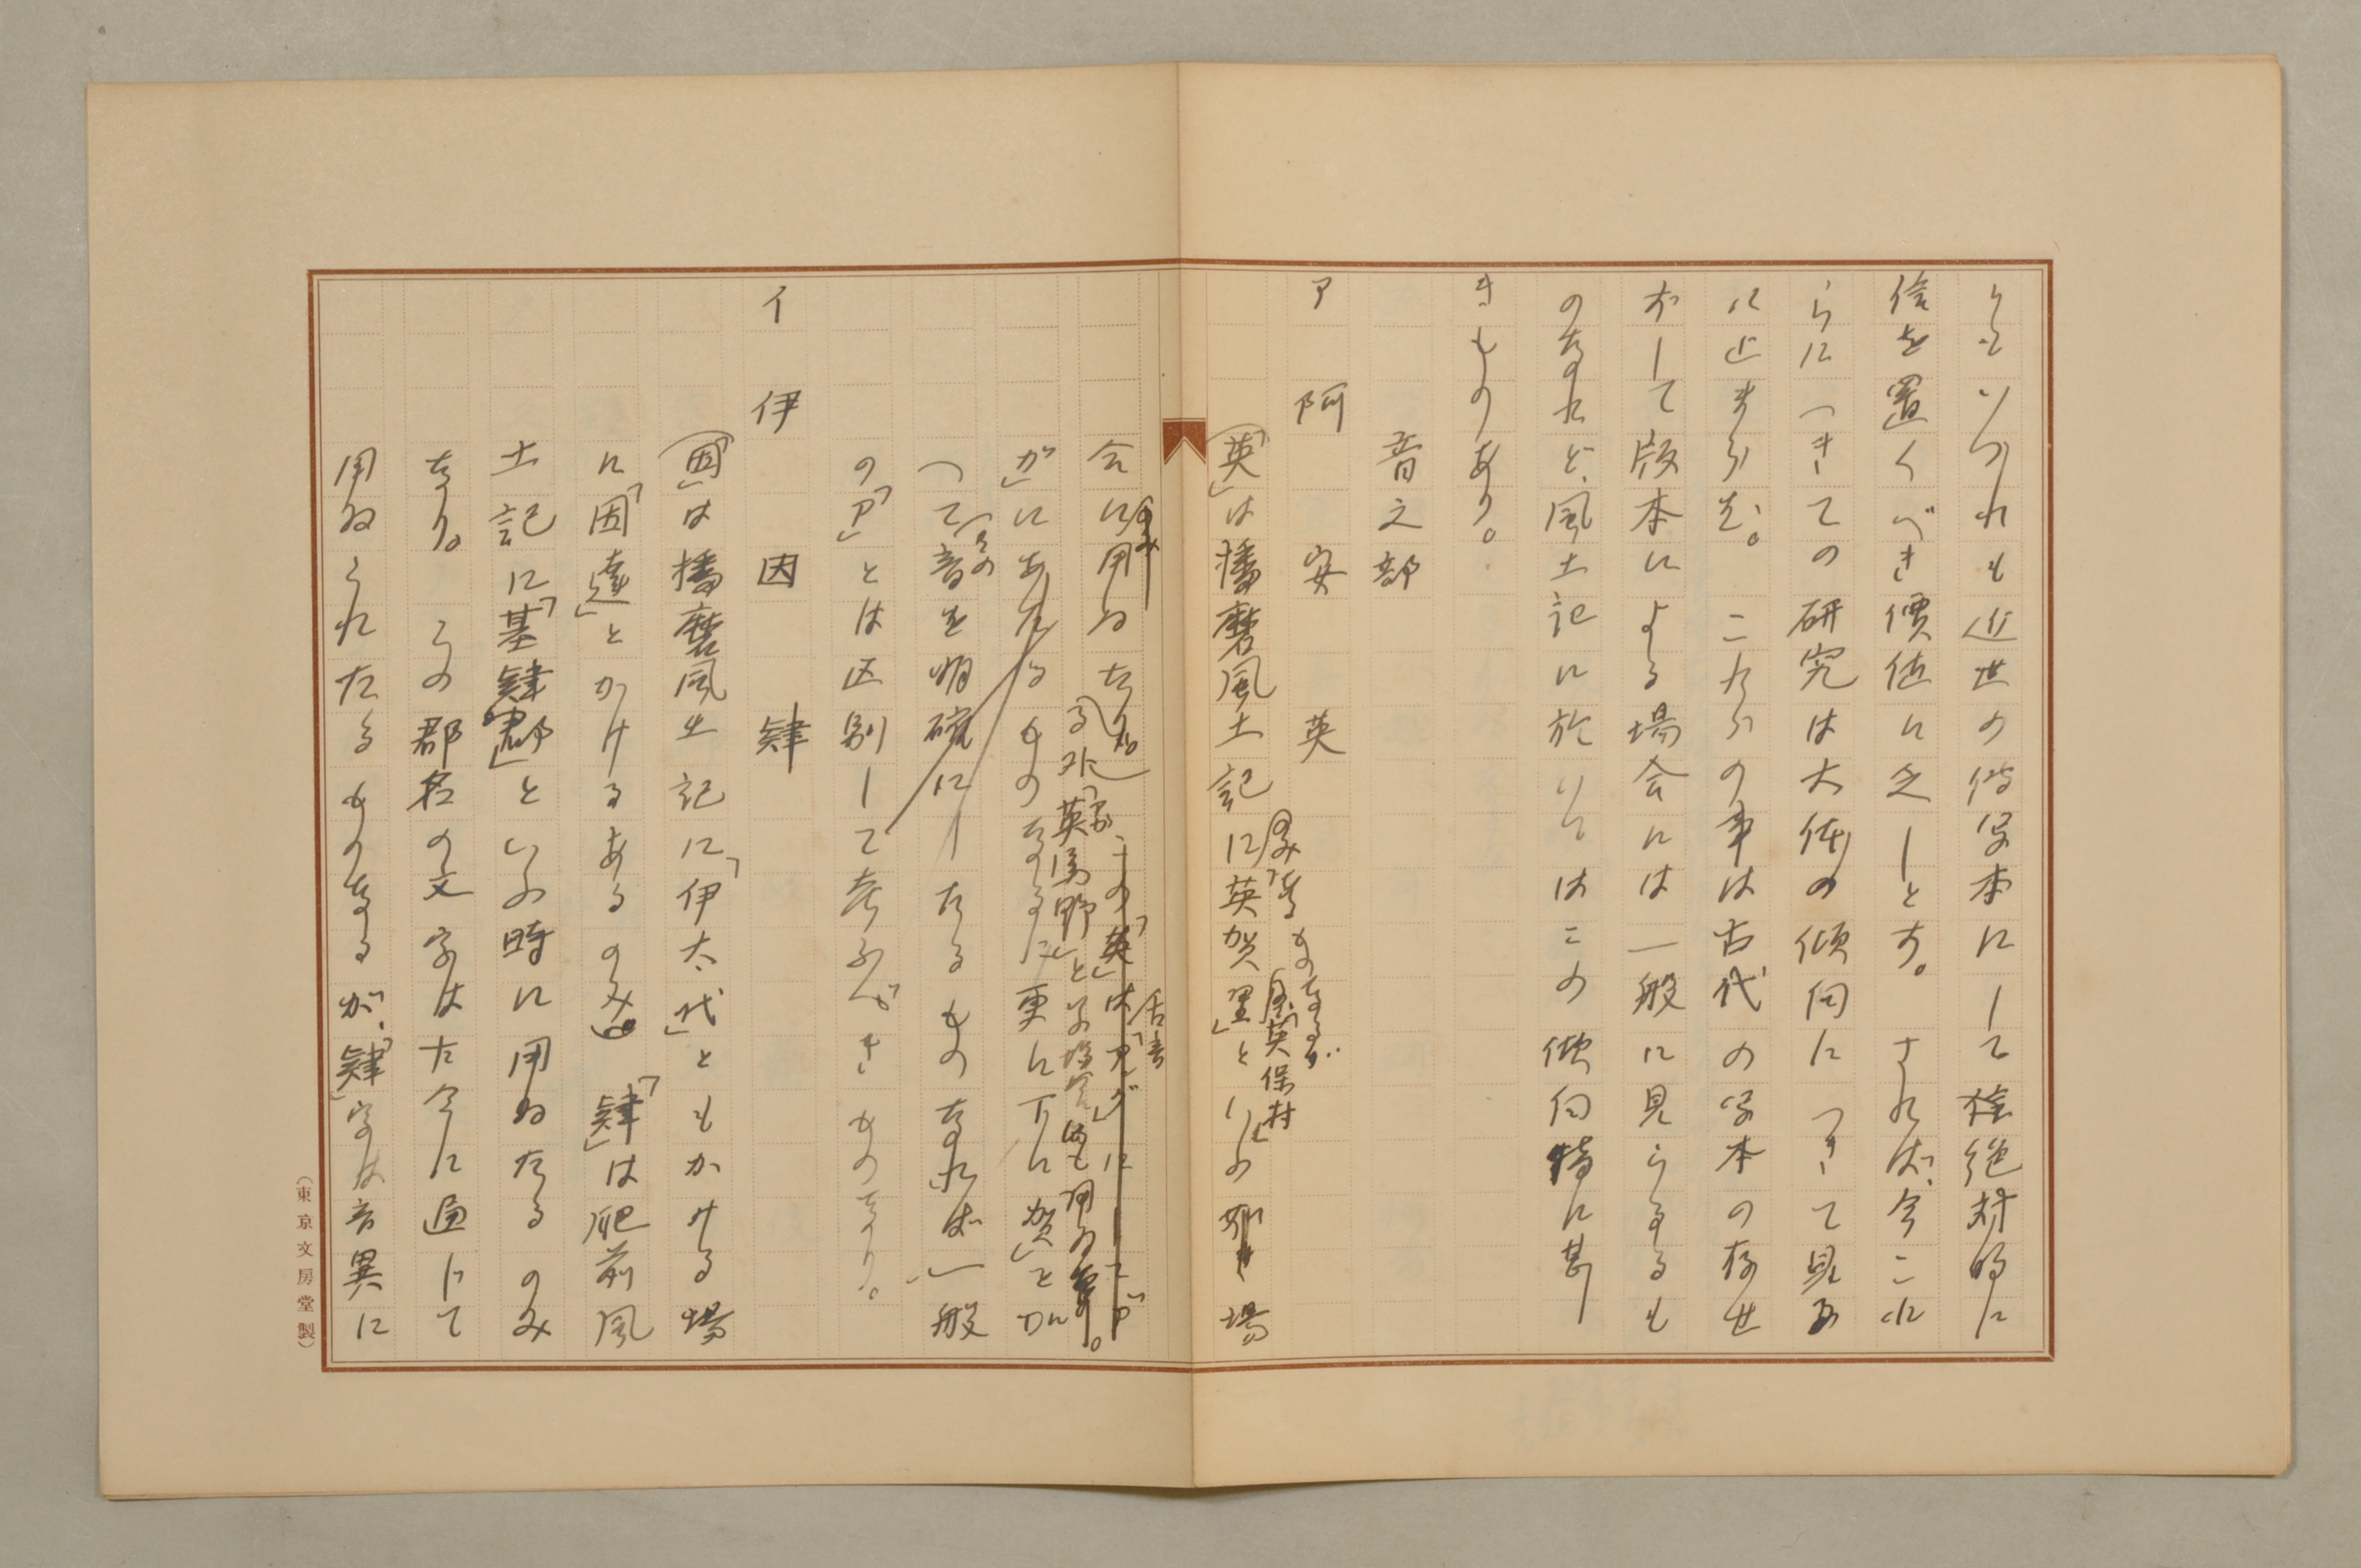 りといづれも近世の伝写本にして絶対的に
信を置くべき價値に乏しとす。されば、今これ
らにつきての研究は大体の傾向につきて見る
に止まらむ。これらの事は古代の写本の存せ
ずして版本による場合には一般に見らるるも
のなれど、風土記に於いてはこの傾向特に甚し
きものあり。
音之部
ア 阿 安 英
「英」は播磨風土記に「英賀里」といふ場
のみなるものなるが
英保村
合に用ゐたり
のみ
この「英」は「アガ」にしてア
が」にあたるものなるに更に下に「賀」とか
なほ外に「英馬野」と
つて音を明確にしたるものなれば、一般
その
の「ア」とは区別して考ふべきものなり。
イ 伊 因 肄
「因」は播磨風土記に「伊太代」ともかける場
に「因達」とかけるあるのみ。「肄」は肥前風
土記に「基肄郡」といふ時に用ゐたるのみ
なり。この郡名の文字はた今に通じて
用ゐられたるものなるが、「肄」字は音異に
（東京文房堂製）